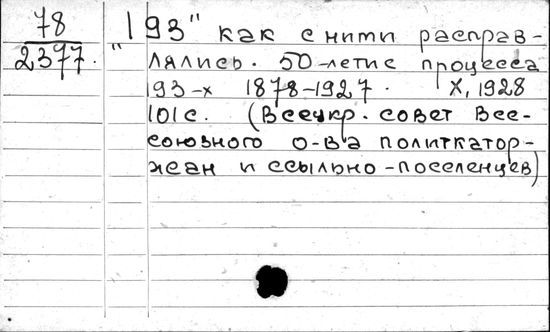 78
2377.
"193" как с ними расправ-
лялись. 50-летие процесса
193-х 1878-1927. Х, 1928
101 с. (Всеукр. совет Все-
союзного о-ва политкатор-
жан и ссыльно-поселенцев)